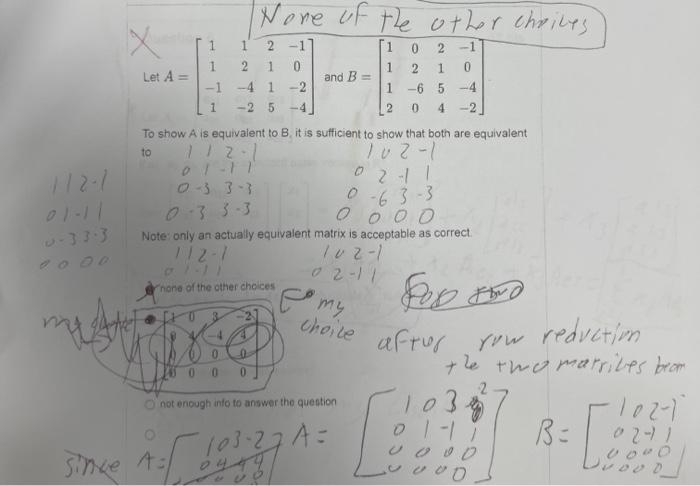 None of the other choices
Let A = [1 1 2 -1; 1 2 1 0; -1 -4 1 -2; 1 -2 5 -4] and B = [1 0 2 -1; 1 2 1 0; 1 -6 5 -4; 2 0 4 -2]
To show A is equivalent to B, it is sufficient to show that both are equivalent
to
1 1 2 -1
0 1 -1 1
0 -3 3 -3
0 -3 3 -3
1 0 2 -1
0 2 -1 1
0 -6 3 -3
0 0 0 0
1 1 2 -1
0 1 -1 1
0 -3 3 -3
0 0 0 0
Note: only an actually equivalent matrix is acceptable as correct.
1 1 2 -1
0 1 -1 1
1 0 2 -1
0 2 -1 1
none of the other choices
my
choice
after row reduction
the two matrices
not enough info to answer the question
since A = [1 0 3 -2
A = [1 0 3
0 1 -1 1
0 0 0 0
0 0 0 0]
B = [1 0 2 -1
0 2 -1 1
0 0 0 0
0 0 0 0]